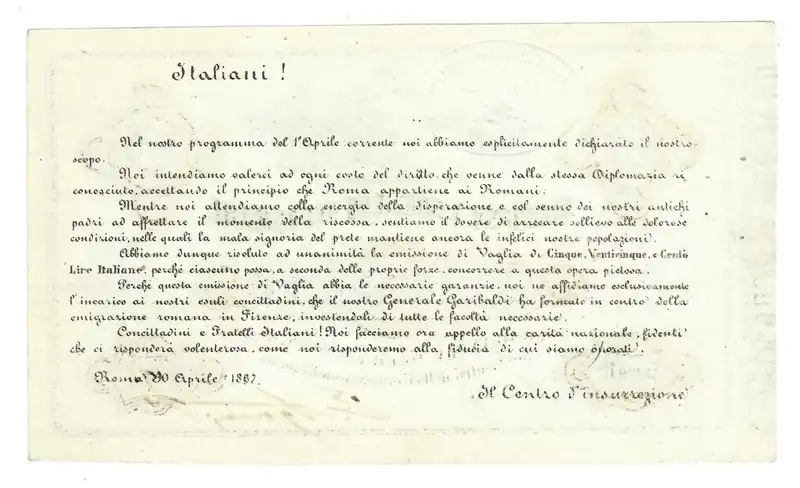 Italiani!
Nel nostro programma del 1° Aprile corrente noi abbiamo esplicitamente dichiarato il nostro
scopo.
Noi intendiamo valerci ad ogni costo del diritto, che venne dalla stessa Diplomazia ri
conosciuto, accettando il principio che Roma appartiene ai Romani.
Mentre noi attendiamo colla energia della disperazione e col senno dei nostri antichi
padri ad affrettare il momento della riscossa, sentiamo il dovere di arrecare sollievo alle dolorose
condizioni, nelle quali la mala signoria del prete mantiene ancora le infelici nostre popolazioni.
Abbiamo dunque risoluto ad unanimità la emissione di Vaglia di Cinque, Venticinque, e Cento
Lire Italiane, perché ciascuno possa, a seconda delle proprie forze, concorrere a questa opera pietosa.
Perché questa emissione di Vaglia abbia le necessarie garanzie, noi ne affidiamo esclusivamente
l'incarico ai nostri esuli concittadini, che il nostro Generale Garibaldi ha formato in centro della
emigrazione romana in Firenze, investendoli di tutte le facoltà necessarie.
Concittadini e Fratelli Italiani! Noi facciamo ora appello alla carità nazionale, fidenti
che ci risponderà volenterosa, come noi risponderemo alla fiducia di cui siamo onorati.
Roma 30 Aprile 1867.
Il Centro d'insurrezione